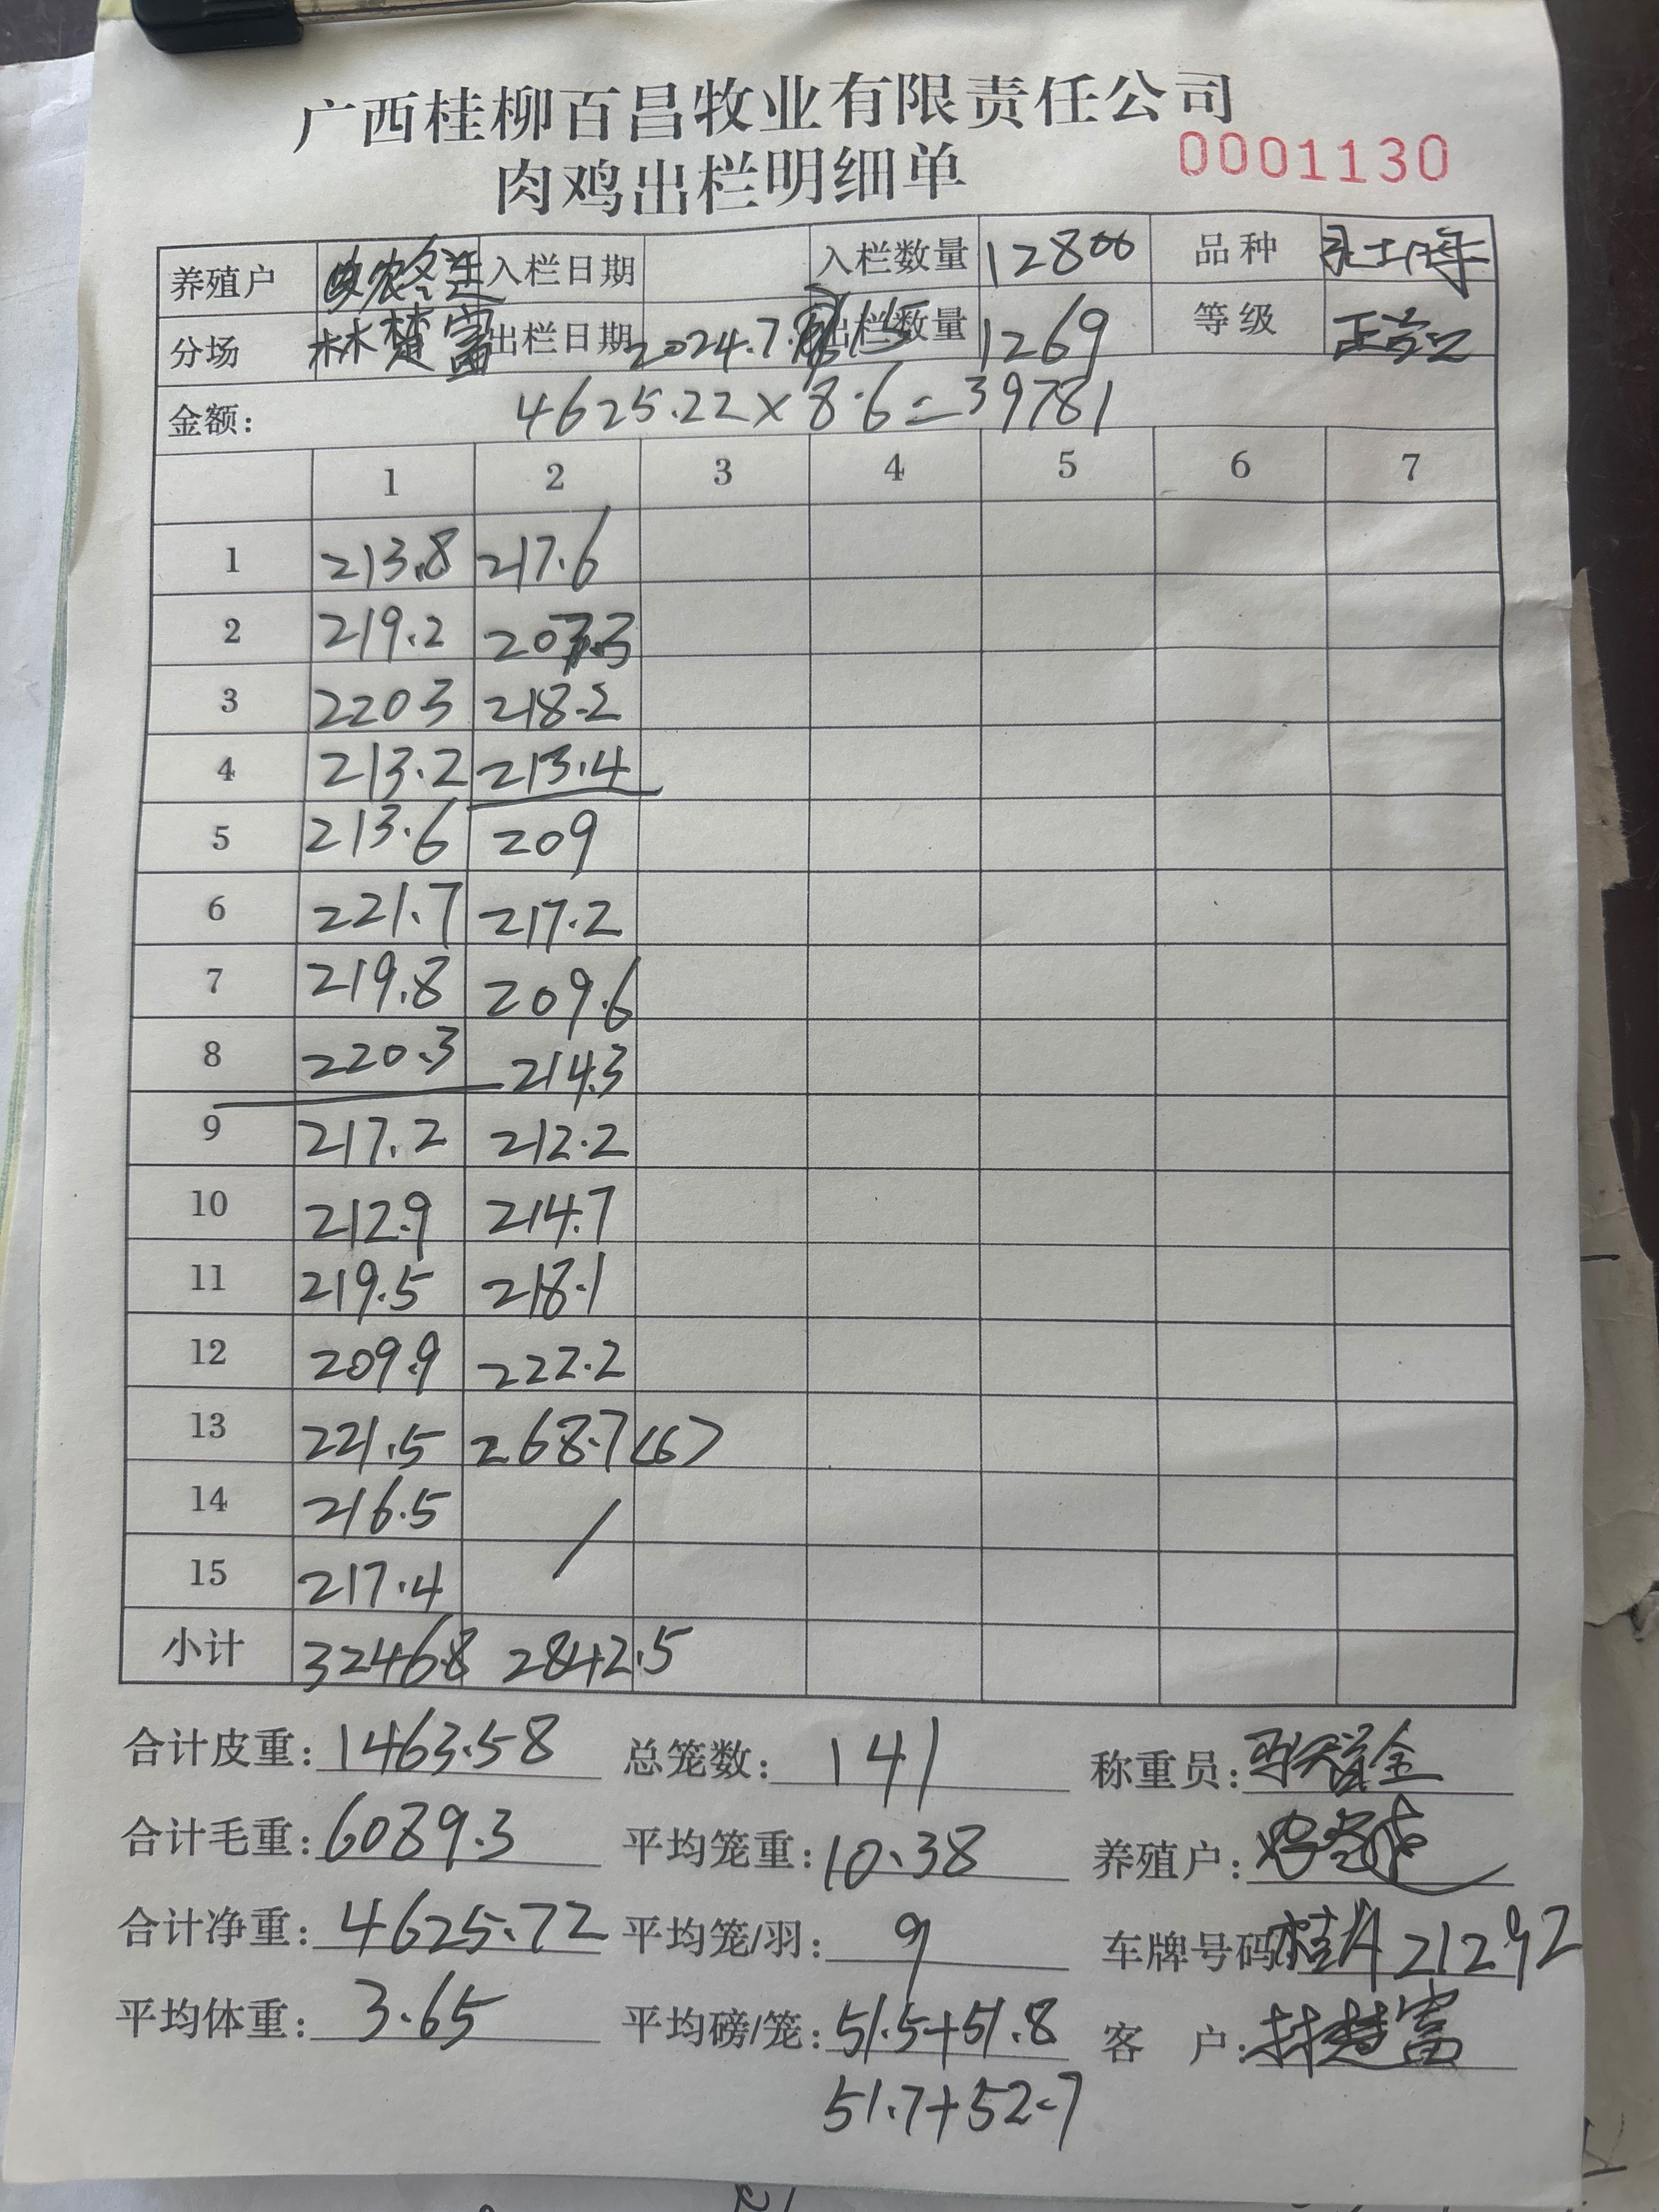 广西桂柳百昌牧业有限责任公司
肉鸡出栏明细单 0001130
养殖户 农冬连 入栏日期 入栏数量 12800 品种
分场 林楚富 出栏日期 2024.7. 出栏数量 1269 等级
金额: 4625.22×8.6=39781
1 2 3 4 5 6 7
1 213.8 217.6
2 219.2 203.3
3 2203 218.2
4 213.2 213.4
5 213.6 209
6 221.7 217.2
7 219.8 209.6
8 220.3 214.3
9 217.2 212.2
10 212.9 214.7
11 219.5 218.1
12 209.9 222.2
13 221.5 268.7(6)
14 216.5 /
15 217.4
小计 3246.8 2842.5
合计皮重: 1463.58 总笼数: 141 称重员:
合计毛重: 6089.3 平均笼重: 10.38 养殖户:
合计净重: 4625.72 平均笼/羽: 9 车牌号码 桂A21292
平均体重: 3.65 平均磅/笼: 51.5+51.8 客 户: 林楚富
51.7+52.7